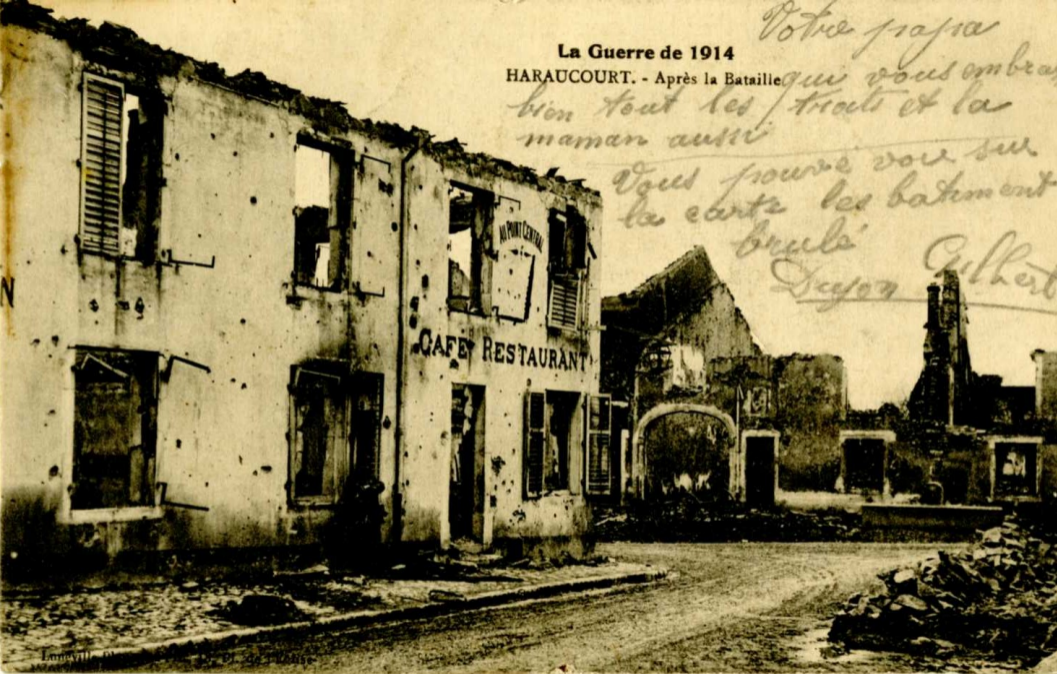 La Guerre de 1914
HARAUCOURT. - Après la Bataille
Votre papa
qui vous embra
bien tout les troits et la
maman aussi
Vous pouvé voir sur
la carte les batiment
brulé
Gilbert
AU POINT CENTRAL
CAFÉ RESTAURANT
N